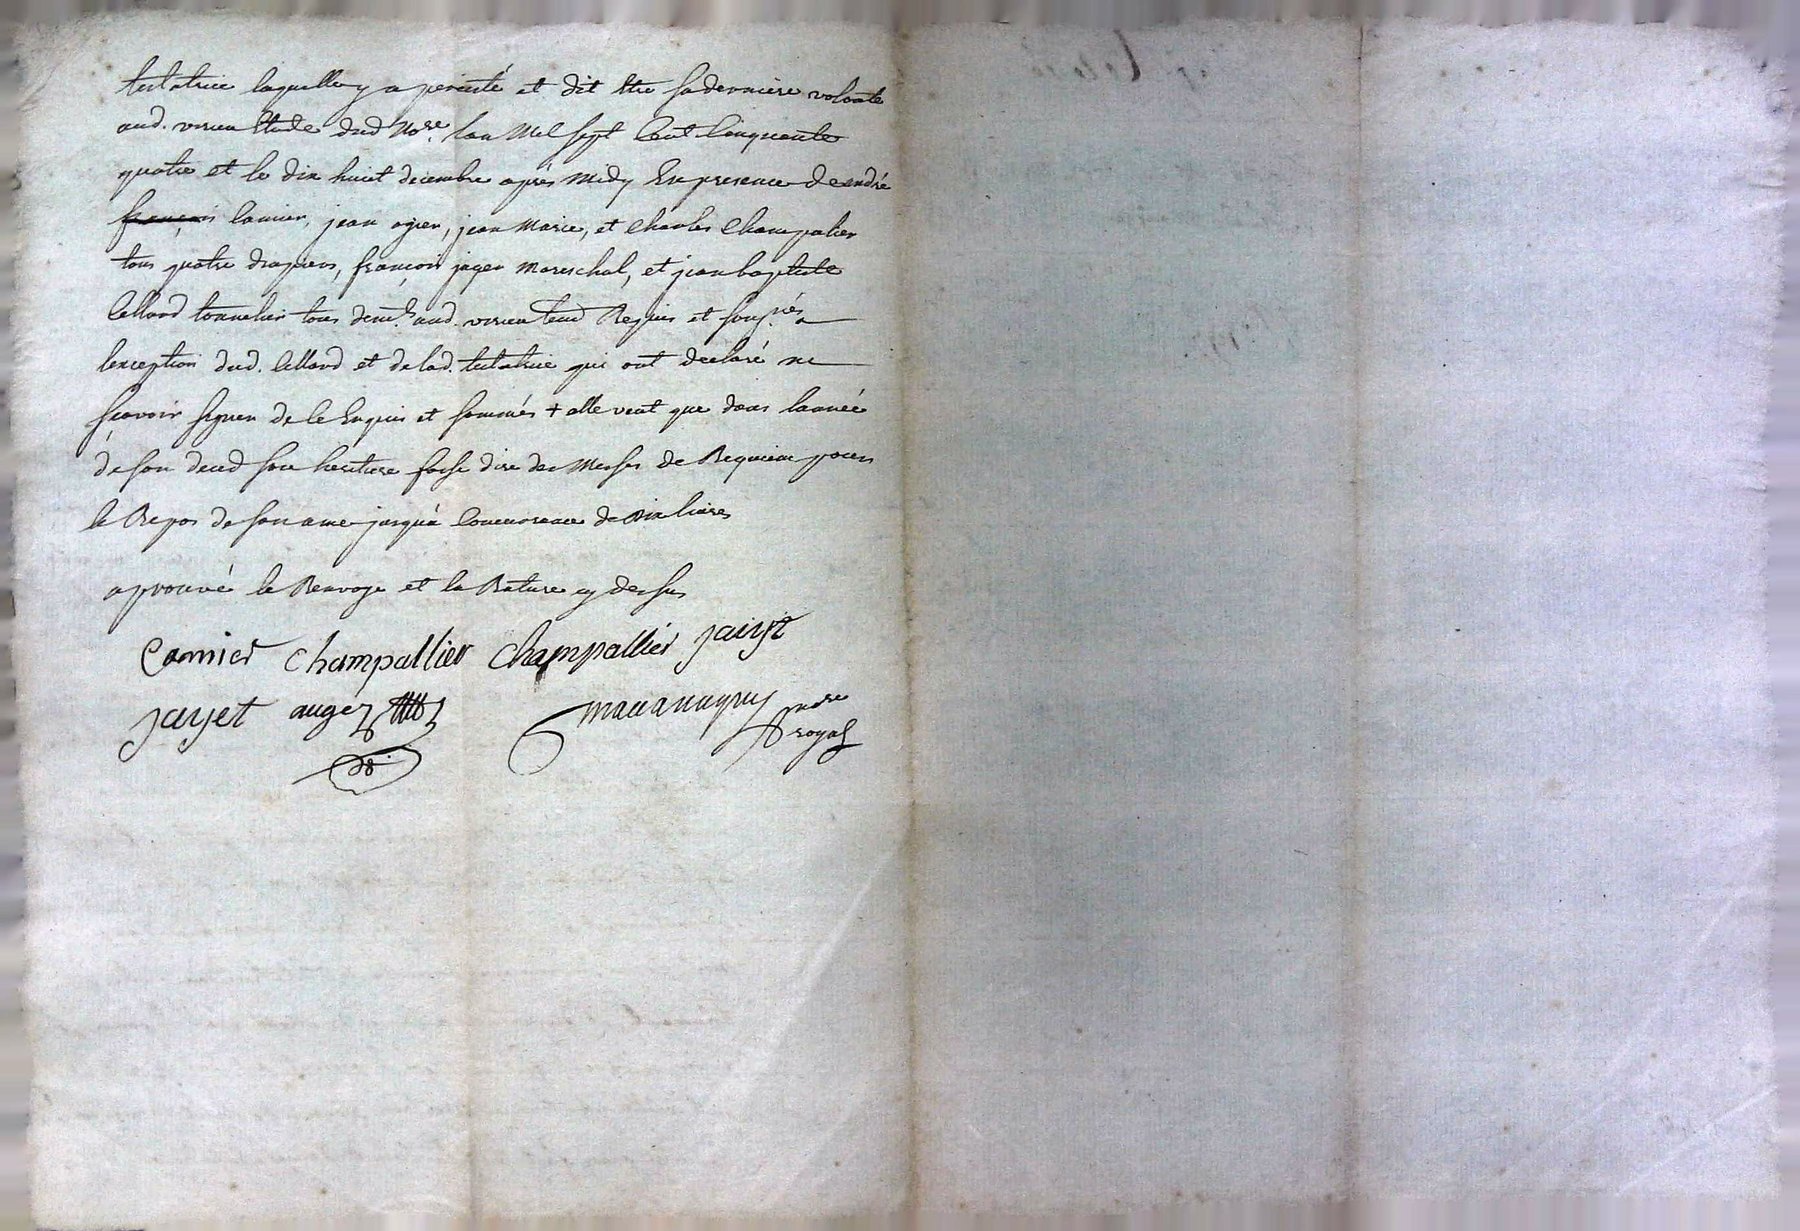 testatrice laquelle y a percisté et dit etre sa derniere volonte
aud. virieu Etude dud No.re lan Mil sept Cent Cinquante
quatre et le dix huict decembre après Midy En presence de andré
françois Camier, jean ogier, jean Marie, et Charles Champalier
tous quatre drapiers, françois jayer Mareschal, et jean baptiste
Collard tonnelier tous dem.ts aud. virieu temoins Requis et sous.nés a
lexception dud. Collard et de lad. testatrice qui ont declaré ne
scavoir signer de ce Enquis et sommés + elle veut que dans lannée
de son deced son heritiere fasse dire des Messes de Requiem pour
le Repos de son ame jusqu'a Concurrance de dix livres
aprouvé le Renvoye et la Rature cy dessus
Camier Champallier Champallier jaiyt
jayet auger